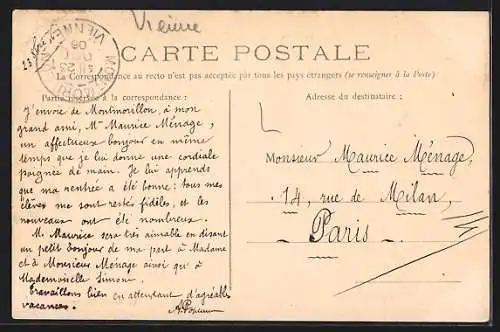 Vienne
CARTE POSTALE
La Correspondance au recto n'est pas acceptée par tous les pays étrangers (se renseigner à la Poste)
Partie réservée à la correspondance :
Adresse du destinataire :
J'envoie de Montmorillon, à mon
grand ami, Mr Maurice Ménage,
un affectueux bonjour en même
temps que je lui donne une cordiale
poignée de main. Je lui apprends
que ma rentrée a été bonne : tous mes
élèves me sont restés fidèles, et les
nouveaux ont été nombreux.
M. Maurice sera très aimable en disant
un petit bonjour de ma part à Madame
et à Monsieur Ménage ainsi qu'à
Mademoiselle Simone.
Travaillons bien en attendant d'agréables
vacances.
Monsieur Maurice Ménage,
14, rue de Milan,
Paris